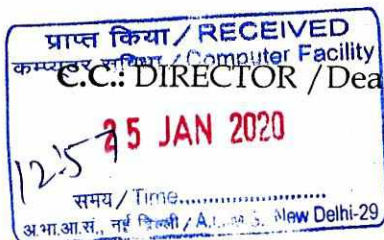 प्राप्त किया / RECEIVED
कम्प्यूटर सुविधा / Computer Facility
C.C.: DIRECTOR / Dea
25 JAN 2020
12:57
समय / Time....................
अ.भा.आ.सं., नई दिल्ली / A.I.I.M.S. New Delhi-29